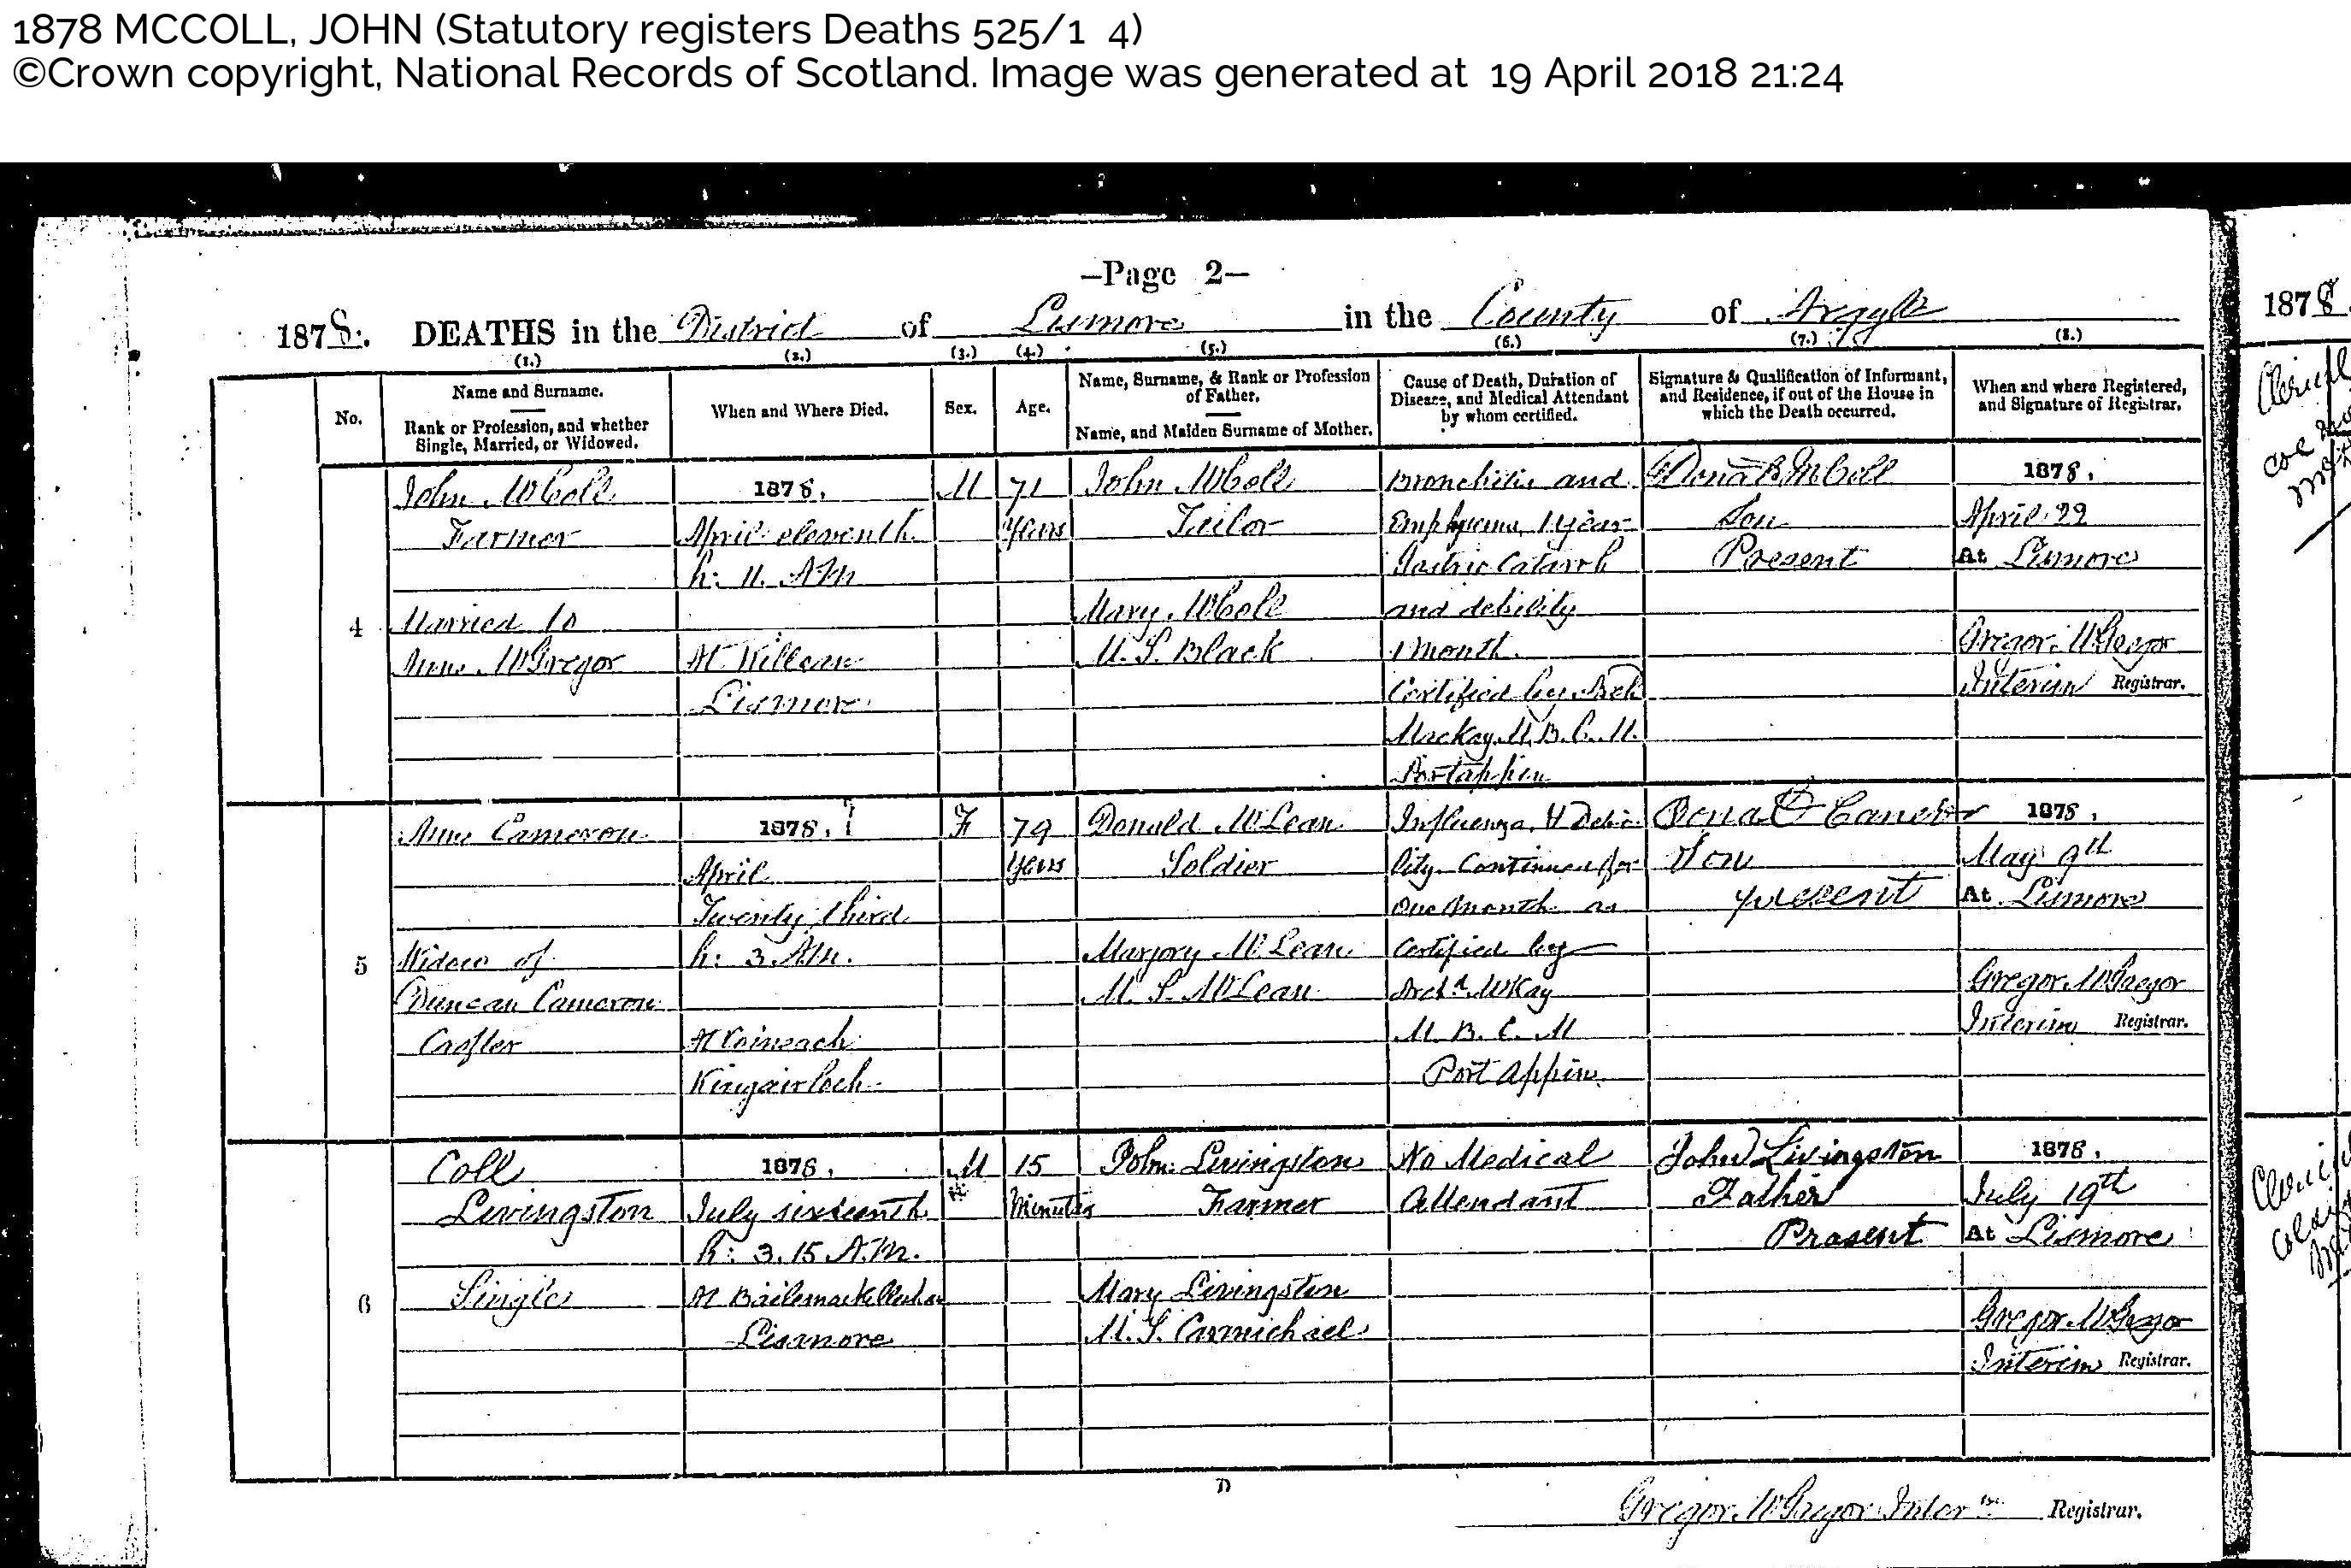 1878 MCCOLL, JOHN (Statutory registers Deaths 525/1 4)
©Crown copyright, National Records of Scotland. Image was generated at 19 April 2018 21:24
—Page 2—
1878. DEATHS in the District of Lismore in the County of Argyle
1878
(1.) (2.) (3.) (4.) (5.) (6.) (7.) (8.)
No.
Name and Surname.
Rank or Profession, and whether
Single, Married, or Widowed.
When and Where Died.
Sex.
Age.
Name, Surname, & Rank or Profession
of Father.
Name, and Maiden Surname of Mother.
Cause of Death, Duration of
Disease, and Medical Attendant
by whom certified.
Signature & Qualification of Informant,
and Residence, if out of the House in
which the Death occurred.
When and where Registered,
and Signature of Registrar.
4
John McColl
Farmer
Married to
Anne McGregor
1878.
April eleventh
h. 11. AM
At Killean
Lismore
M
71
years
John McColl
Tailor
Mary McColl
M. S. Black
Bronchitis and
Emphysema, 1 year
Gastric Catarrh
and debility
1 month.
Certified by Arch
Mackay. M. B. C. M.
Portappin
McColl
Son
Present
1878.
April 22
At Lismore
Gregor McGregor
Interim Registrar.
5
Anne Cameron
Widow of
Duncan Cameron
Crofter
1878.
April
Twenty third
h. 3. AM.
At
Kingairloch
F
79
years
Donald McLean
Soldier
Marjory McLean
M. S. McLean
Influenza. & Debi
lity Continued for
One Month as
Certified by
Archd. McKay
M. B. C. M
Port Appin.
Son
present
1878.
May 9th
At Lismore
Gregor McGregor
Interim Registrar.
6
Coll
Livingston
Single
1878.
July sixteenth
h. 3. 15 A.M.
At
Lismore
M
15
Minutes
John Livingston
Farmer
Mary Livingston
M. S. Carmichael
No Medical
Attendant
John Livingston
Father
Present
1878.
July 19th
At Lismore
Gregor McGregor
Interim Registrar.
D
Gregor McGregor Interim Registrar.